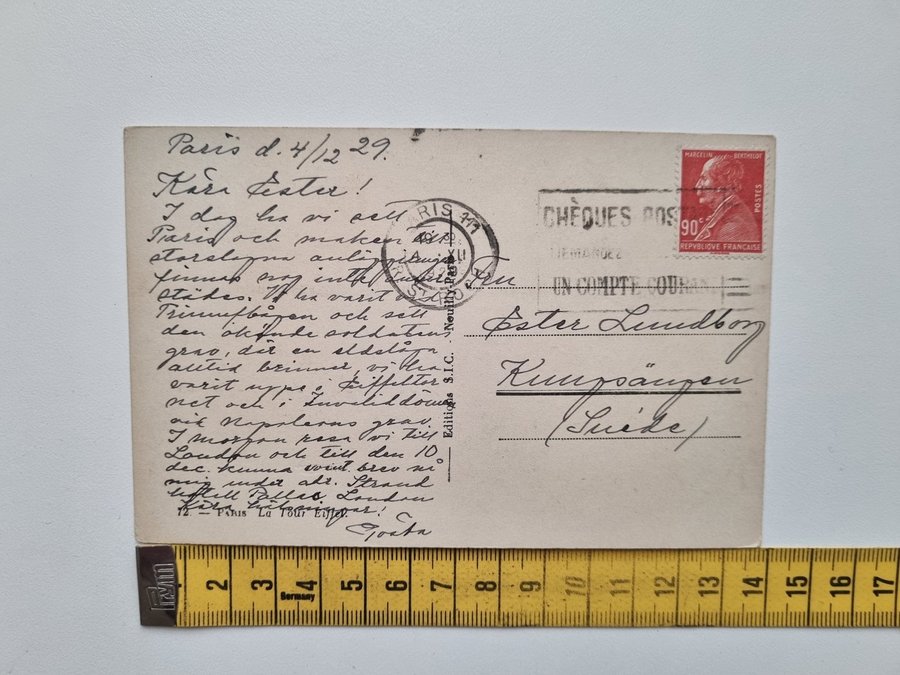 Paris d. 4/12 29.
Kära Ester!
I dag ha vi sett
Paris och maken till
storslagna anläggningar
finner nog inte andra
städer. Vi ha varit vid
Triumfbågen och sett
den okände soldatens
grav, där en eldslåga
alltid brinner, vi ha
varit uppe i Eiffeltor
net och i Invaliddomen
vid Napoleons grav.
I morgon resa vi till
London och till den 10
dec. kunna brev nå
mig under adr. Strand
Hotell Pallas London
Kära hälsningar!
Gösta
72. — PARIS La Tour Eiffel.
Editions S.I.C. . Neuilly-Paris
PARIS
XII
CHÈQUES POST
DEMANDEZ
UN COMPTE COURAN
MARCELIN BERTHELOT
POSTES
90c
REPVBLIQVE FRANÇAISE
Frn
Ester Lundborg
Kungsängen
(Suéde)
2 3 4 5 6 7 8 9 10 11 12 13 14 15 16 17
Germany